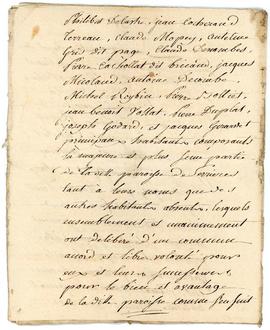 Philibert Delaste, jean
terreau, Claude, antoine
Gris dit page, Claude Descombes
Pierre La Follat dit, jacques
antoine Decombe
Michel, Pierre
jean benoit Vallat, Pierre Duplat
joseph Godard, et jacques
principaux habitants composants
la majeure et plus saine partie
de la ditte paroisse de
tant a leurs noms que des
autres habitants absents, lesquels
ensemblement et unanimement
ont deliberé d'un commun
accord et libre volonté pour
eux et leurs successeurs
pour le bien et avantage
de la ditte paroisse comme s'en suit